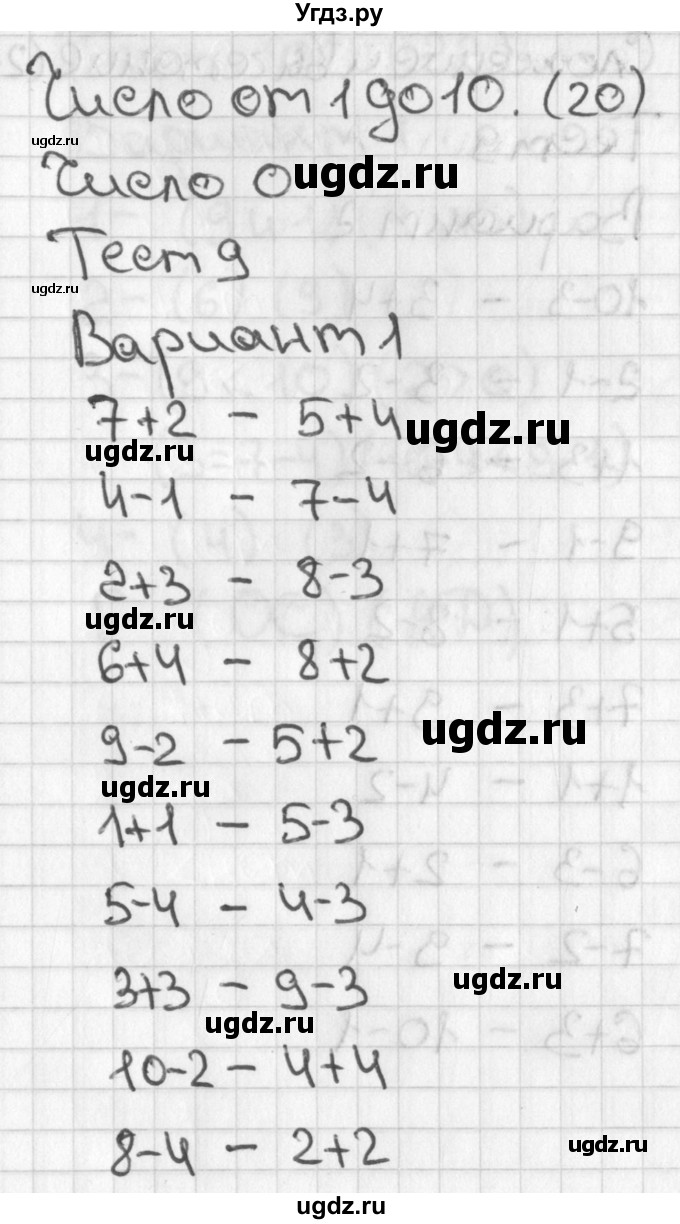 Угдз.ру
Число от 1 до 10. (20)
ugdz.ru
Число 0
ugdz.ru
Тест 9
ugdz.ru
Вариант 1
7+2 - 5+4
ugdz.ru
ugdz.ru
4-1 - 7-4
2+3 - 8-3
ugdz.ru
6+4 - 8+2
9-2 - 5+2
ugdz.ru
ugdz.ru
1+1 - 5-3
5-4 - 4-3
3+3 - 9-3
ugdz.ru
ugdz.ru
10-2 - 4+4
8-4 - 2+2
ugdz.ru
ugdz.ru